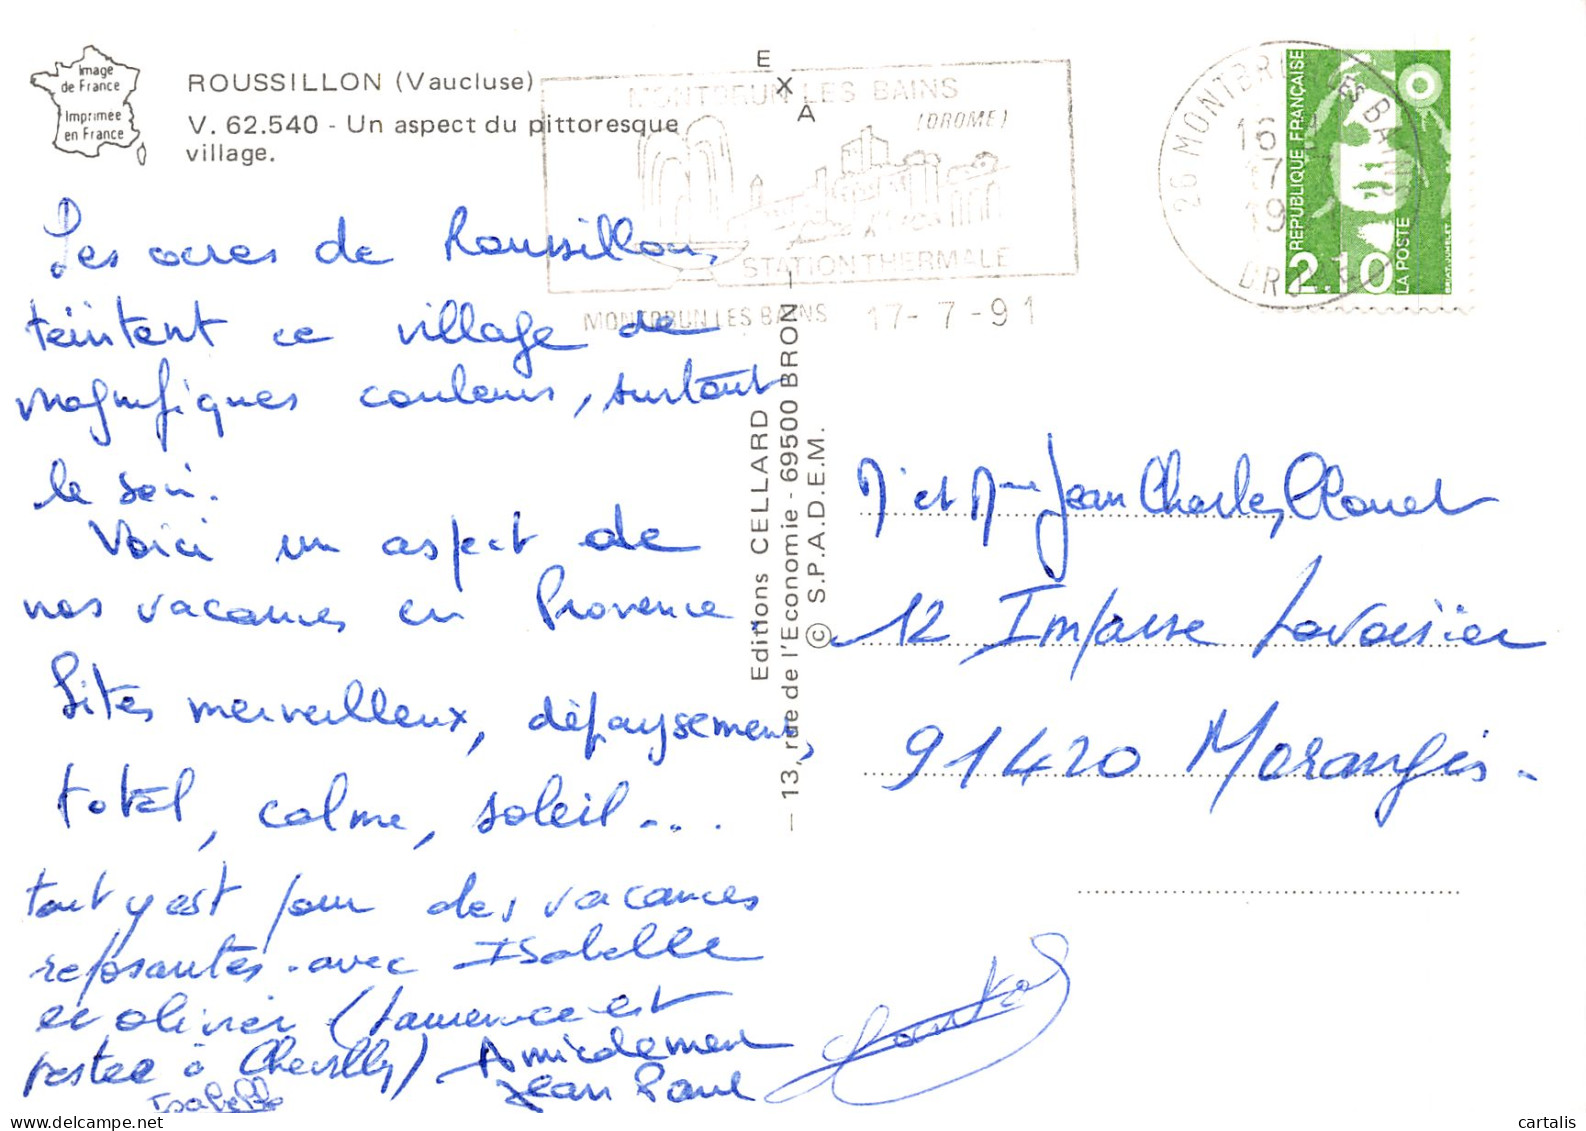 Image
de France
Imprimée
en France
ROUSSILLON (Vaucluse)
V. 62.540 - Un aspect du pittoresque
village.
E
X
A
MONTBRUN LES BAINS
(DROME)
STATION THERMALE
MONTBRUN LES BAINS 17-7-91
26 MONTBRUN LES BAINS
16 H
17-7
19
DROME
RÉPUBLIQUE FRANÇAISE
2,10
LA POSTE
Les ocres de Roussillon,
teintent ce village de
magnifiques couleurs, surtout
le soir.
Voici un aspect de
nos vacances en Provence
Sites merveilleux, dépaysement,
total, calme, soleil...
tout y est pour des vacances
reposantes avec Isabelle
et olivier (Laurence est
restée à Chevilly) Amicalement
Jean Paul
Isabelle
Editions CELLARD
— 13, rue de l'Economie - 69500 BRON —
© S.P.A.D.E.M.
Mr et Mme Jean Charles Clouet
12 Impasse Lavoisier
91420 Morangis.
cartalis